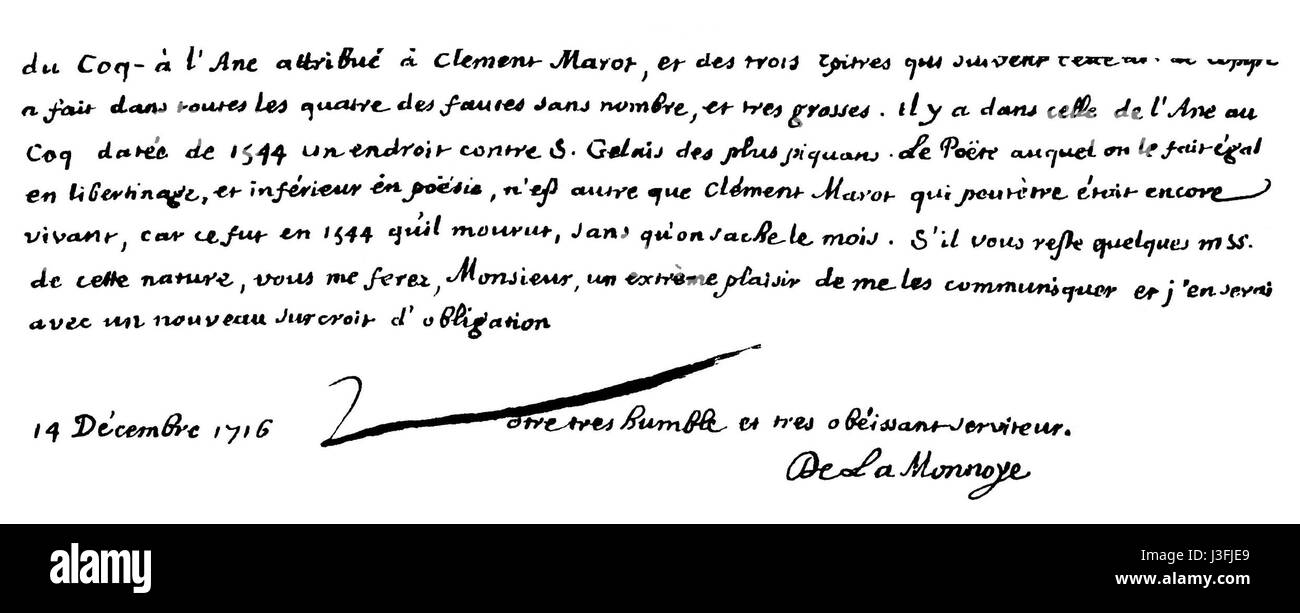 du Coq-à l'Ane attribué à Clement Marot, et des trois Epitres qui suivent
a fait dans toutes les quatre des fautes sans nombre, et tres grosses. il y a dans celle de l'Ane au
Coq datée de 1544 un endroit contre S. Gelais des plus piquans. Le Poëte auquel on le fait égal
en libertinage, et inférieur en poësie, n'est autre que Clément Marot qui peutètre étoit encore
vivant, car ce fut en 1544 qu'il mourut, sans qu'on sache le mois. S'il vous reste quelques mss.
de cette nature, vous me ferez, Monsieur, un extrème plaisir de me les communiquer et j'en serai
avec un nouveau surcroit d'obligation
14 Décembre 1716 Votre tres humble et tres obéissant serviteur.
De La Monnoye
alamy
Image ID: J3FJE9
www.alamy.com